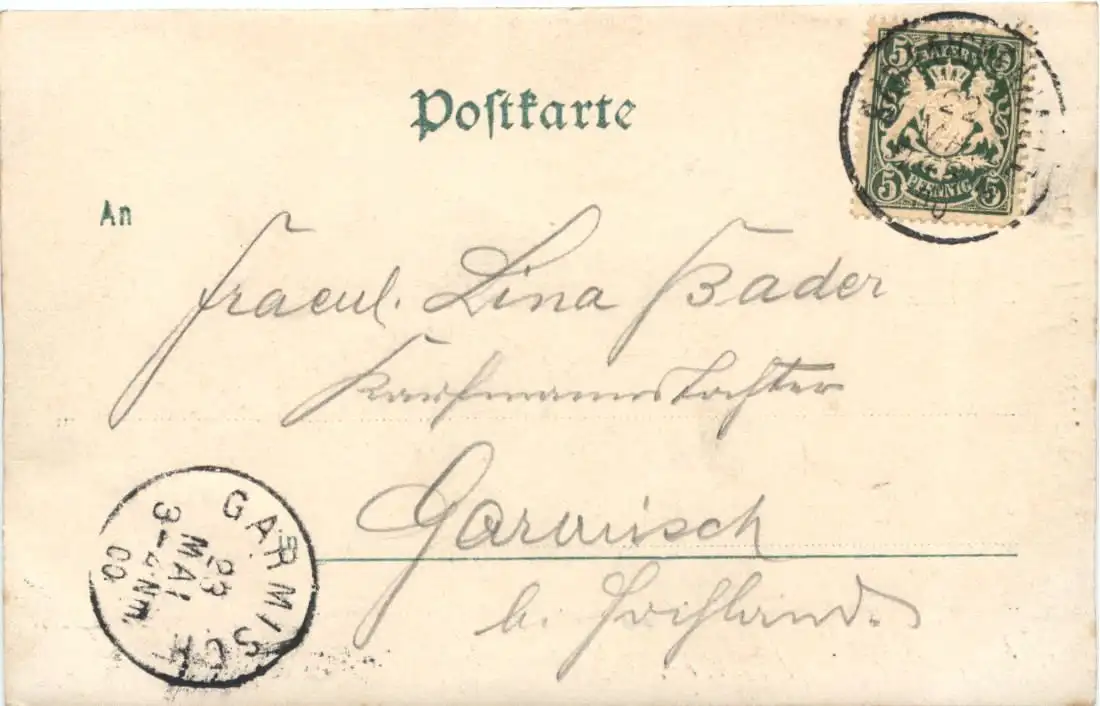 5 BAYERN 5
5 PFENNIG 5
22
MAI
Postkarte
An
Fraeul. Lina Bader
Kaufmannstochter
Garmisch
b.
GARMISCH
23 MAI
3-4 Nm.
00